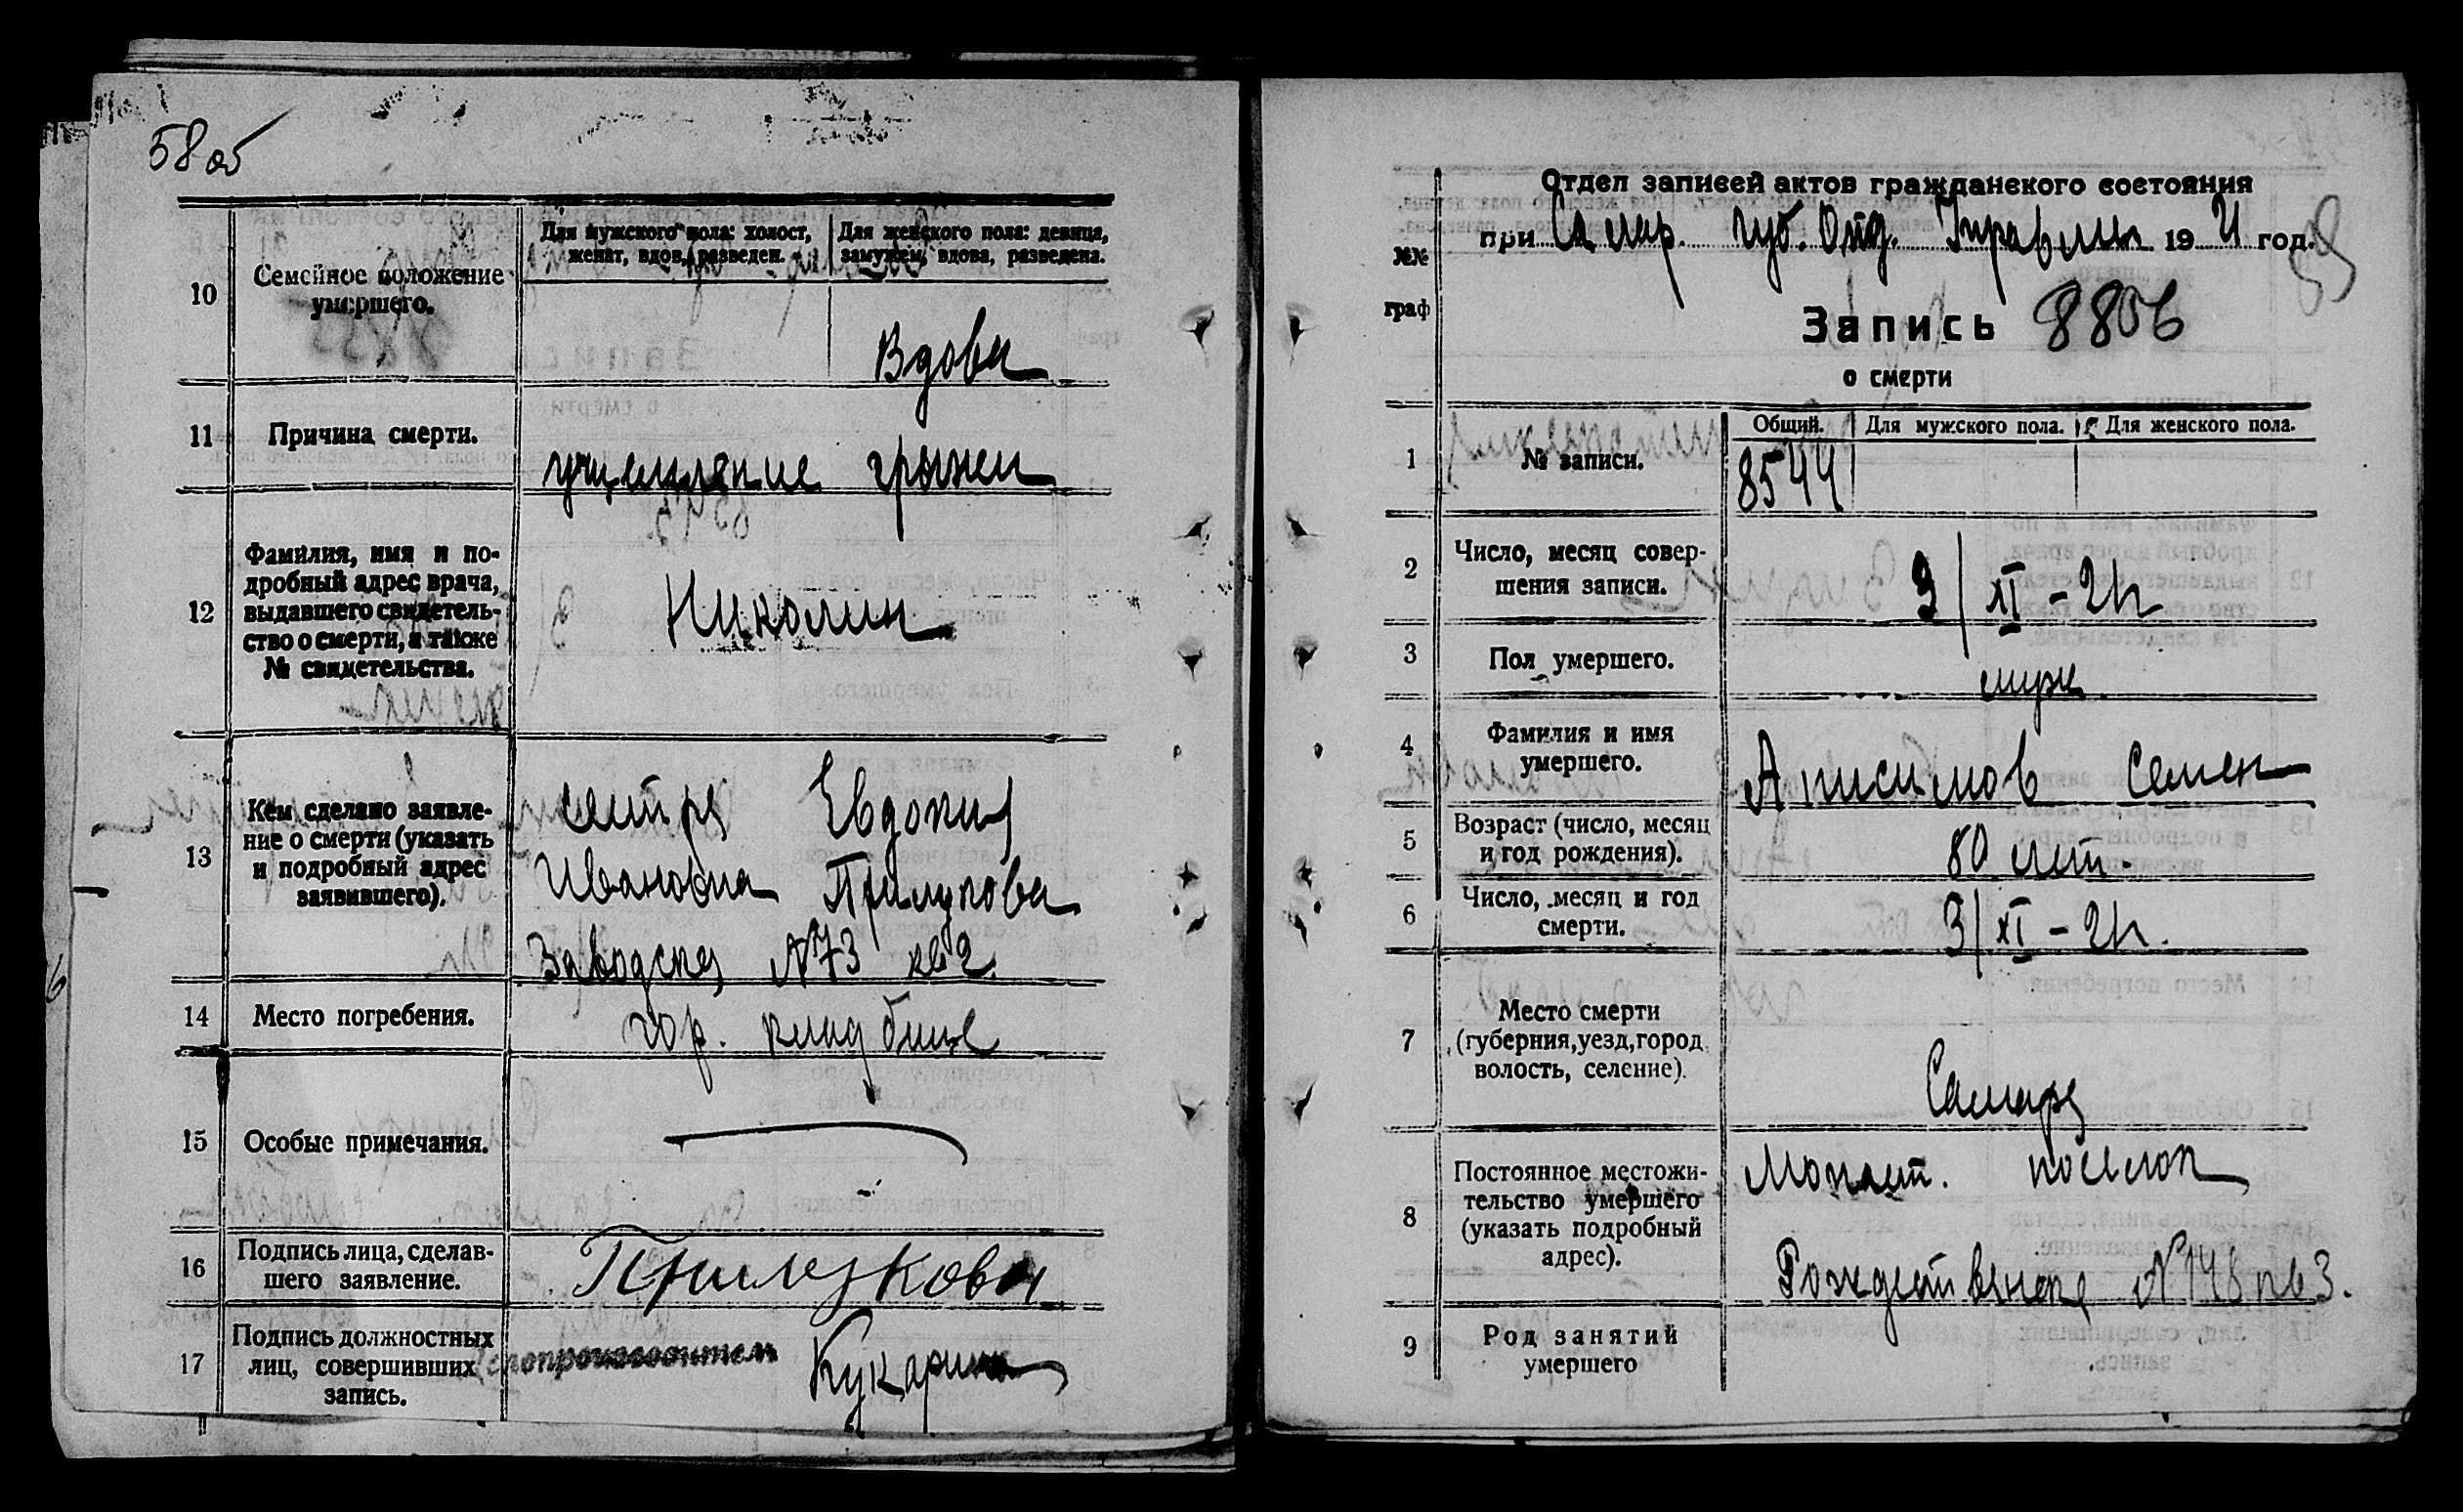 58 об
10
Семейное положение
умершего.
Для мужского пола: холост,
женат, вдов, разведен.
Для женского пола: девица,
замужем, вдова, разведена.
Вдова
11
Причина смерти.
ущемление грыжи
12
Фамилия, имя и по-
дробный адрес врача,
выдавшего свидетель-
ство о смерти, а также
№ свидетельства.
Николин
13
Кем сделано заявле-
ние о смерти (указать
и подробный адрес
заявившего).
сестра Евдокия
Ивановна
Заводская №73 кв 2
14
Место погребения.
гор. кладбище
15
Особые примечания.
16
Подпись лица, сделав-
шего заявление.
17
Подпись должностных
лиц, совершивших
запись.
Делопроизводитель Кукарина
59
Отдел записей актов гражданского состояния
при Самар. губ. Отд. Управлен 1921 год.
№№
граф
Запись 8806
о смерти
1
№ записи.
Общий.
Для мужского пола.
Для женского пола.
8544
2
Число, месяц совер-
шения записи.
9/XI - 21 г
3
Пол умершего.
муж
4
Фамилия и имя
умершего.
Анисимов Семен
5
Возраст (число, месяц
и год рождения).
80 лет.
6
Число, месяц и год
смерти.
3/XI - 21 г.
7
Место смерти
(губерния, уезд, город
волость, селение).
Самара
8
Постоянное местожи-
тельство умершего
(указать подробный
адрес).
Монаст. поселок
Рождественск №148 кв 3.
9
Род занятий
умершего